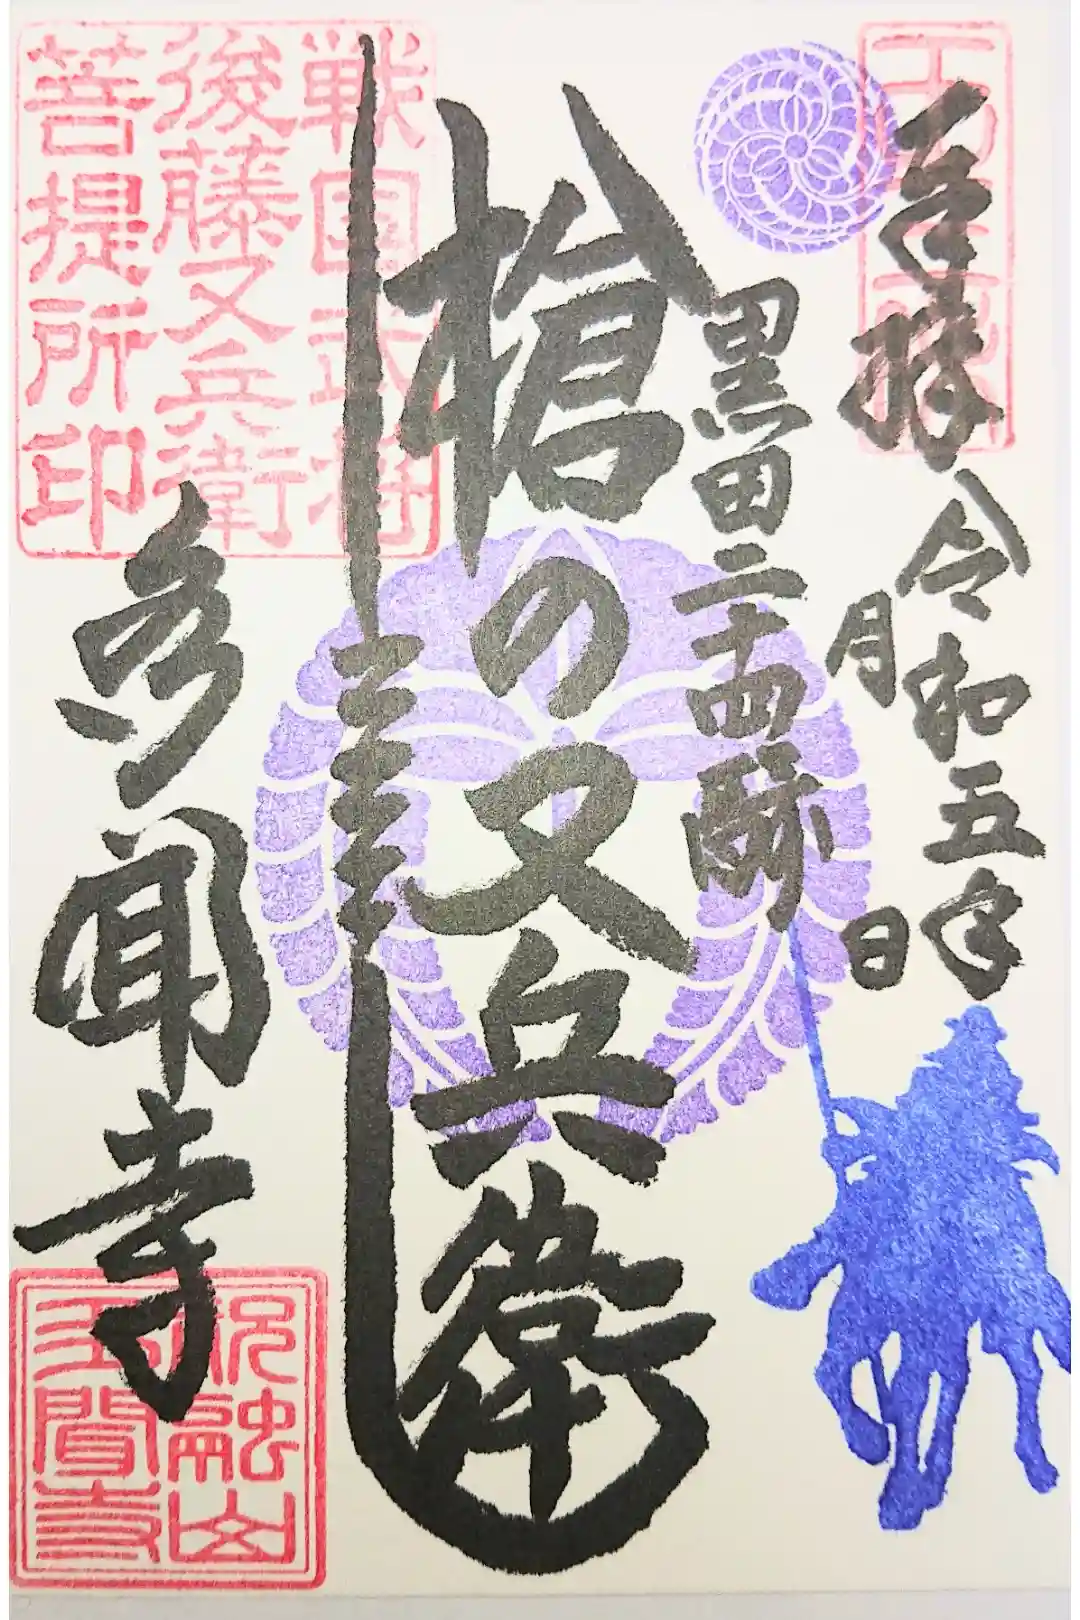 奉拝
令和五年
月
日
黒田二十四騎
槍の又兵衛
戦国武将
後藤又兵衛
菩提所印
多聞寺
祝融山
多聞寺